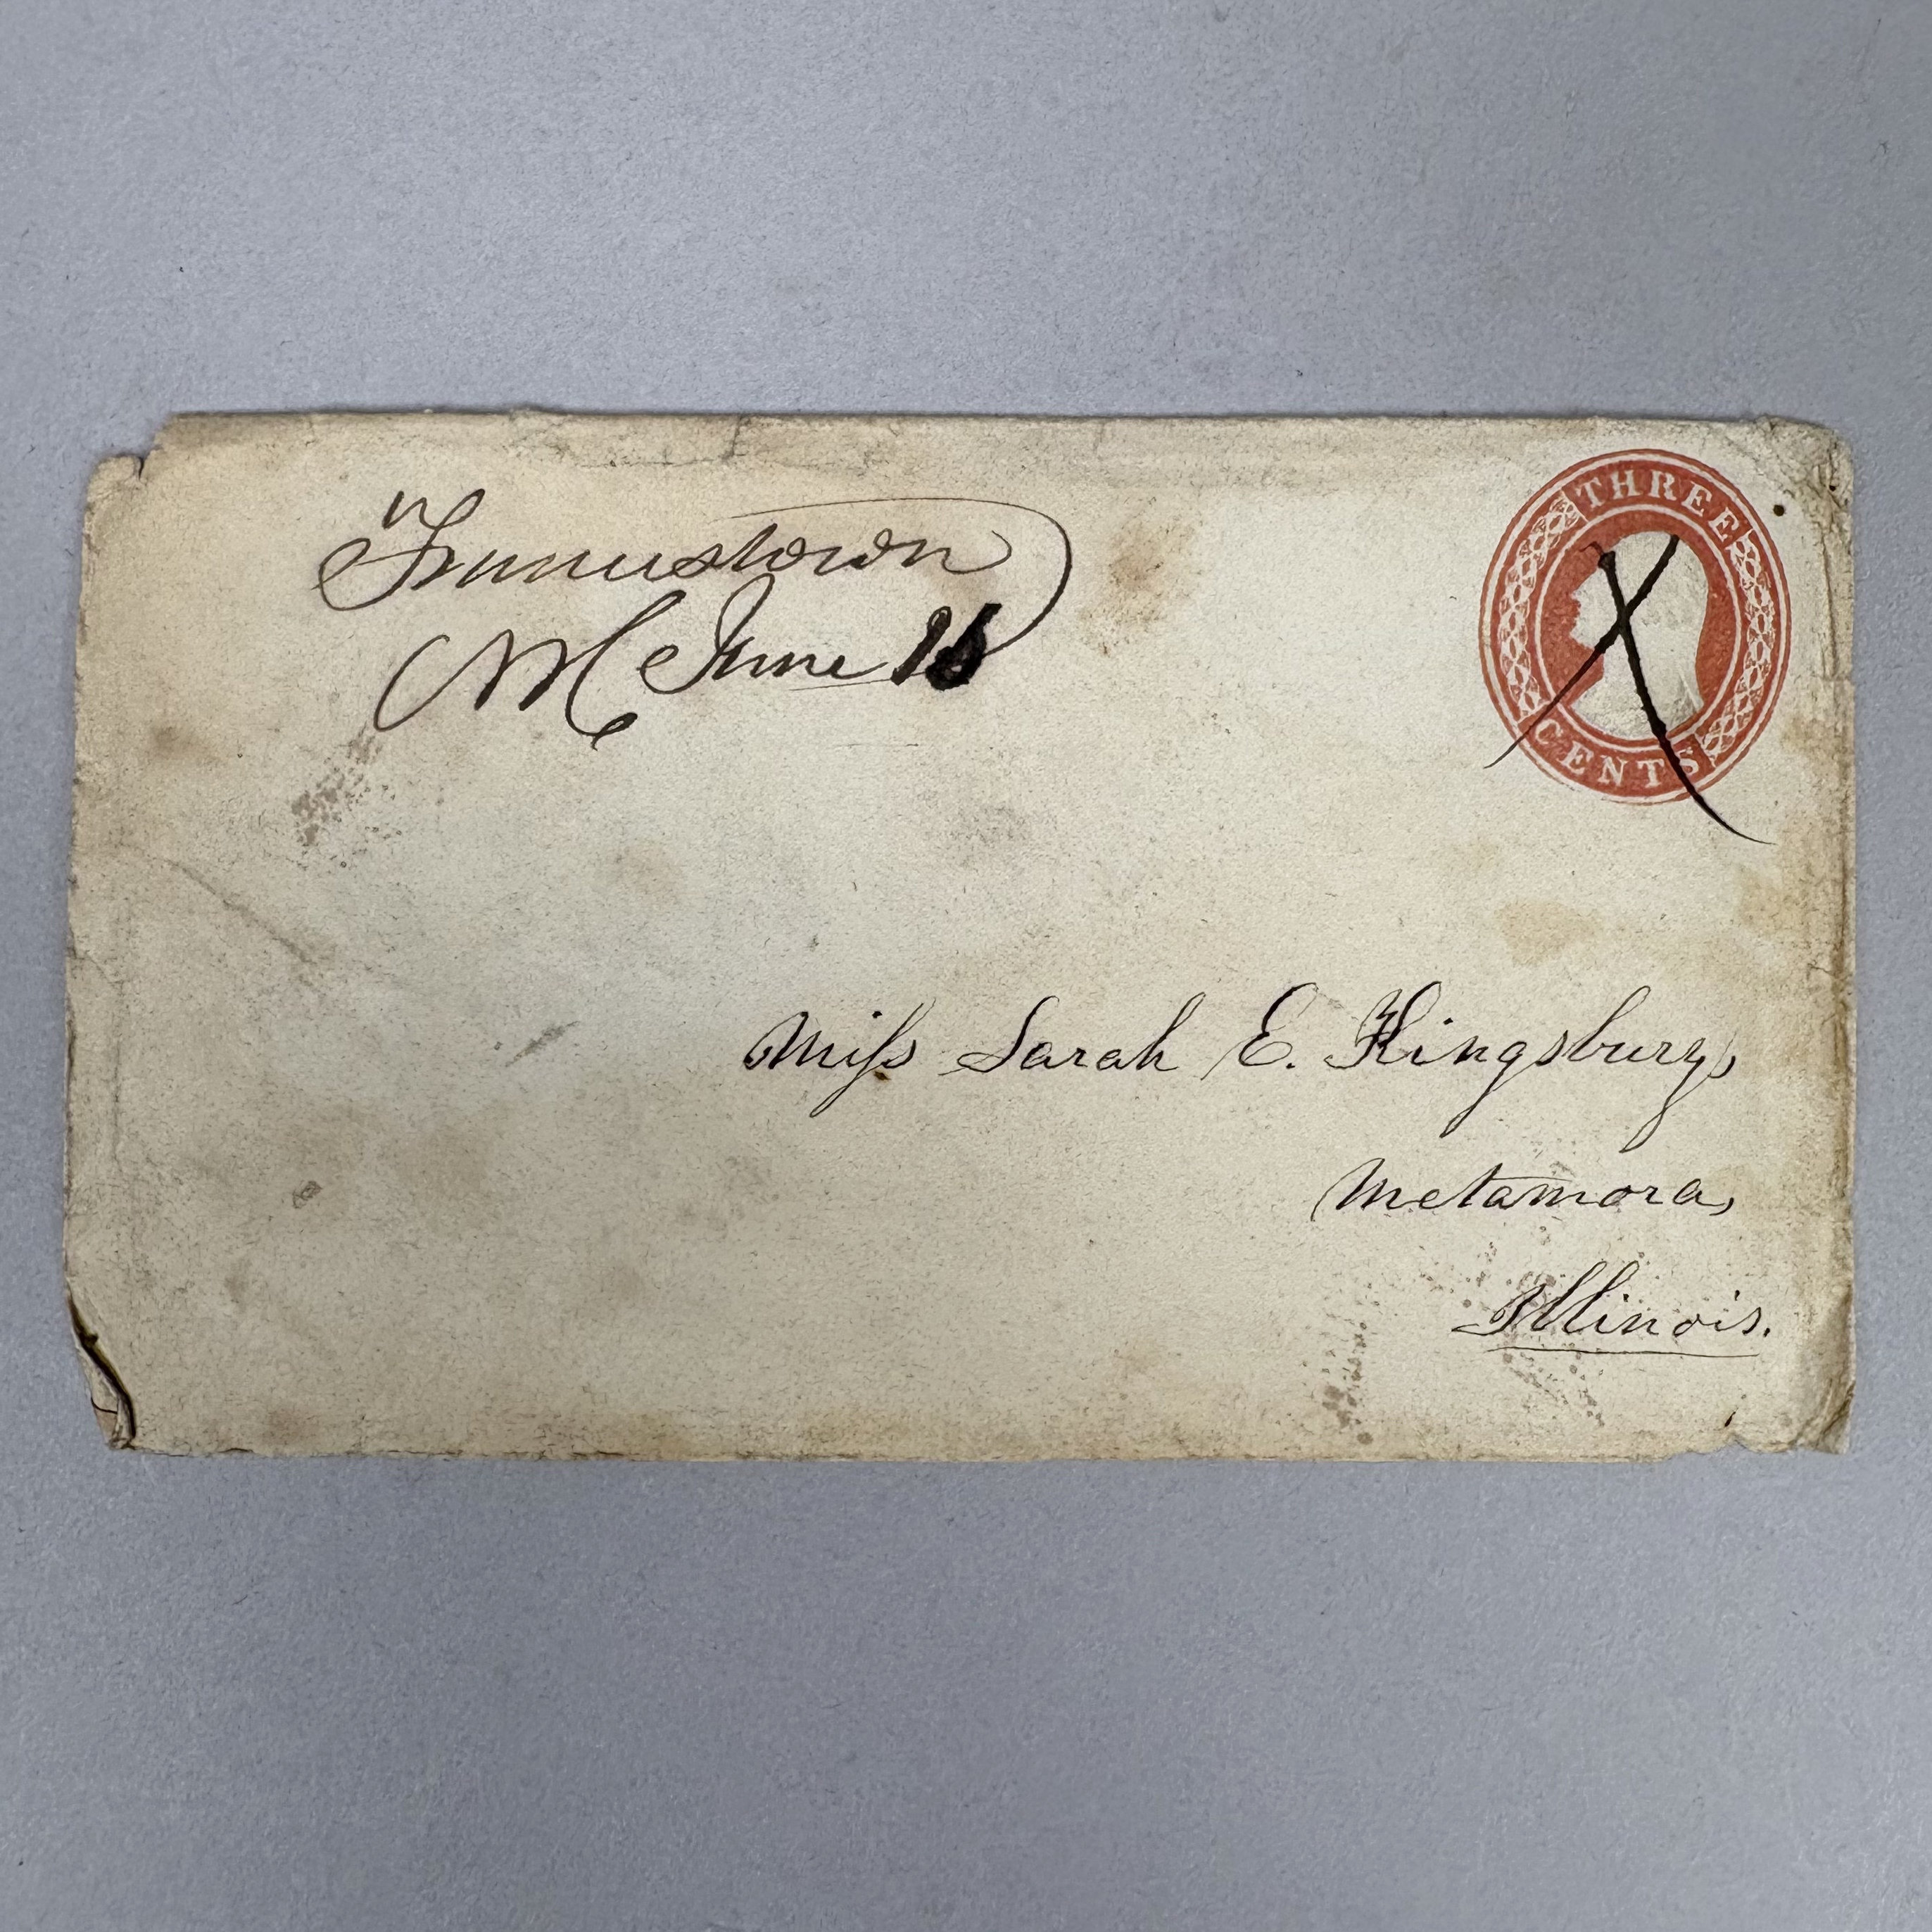 THREE
CENTS
June 16
Miss Sarah E. Kingsbury,
Metamora,
Illinois.